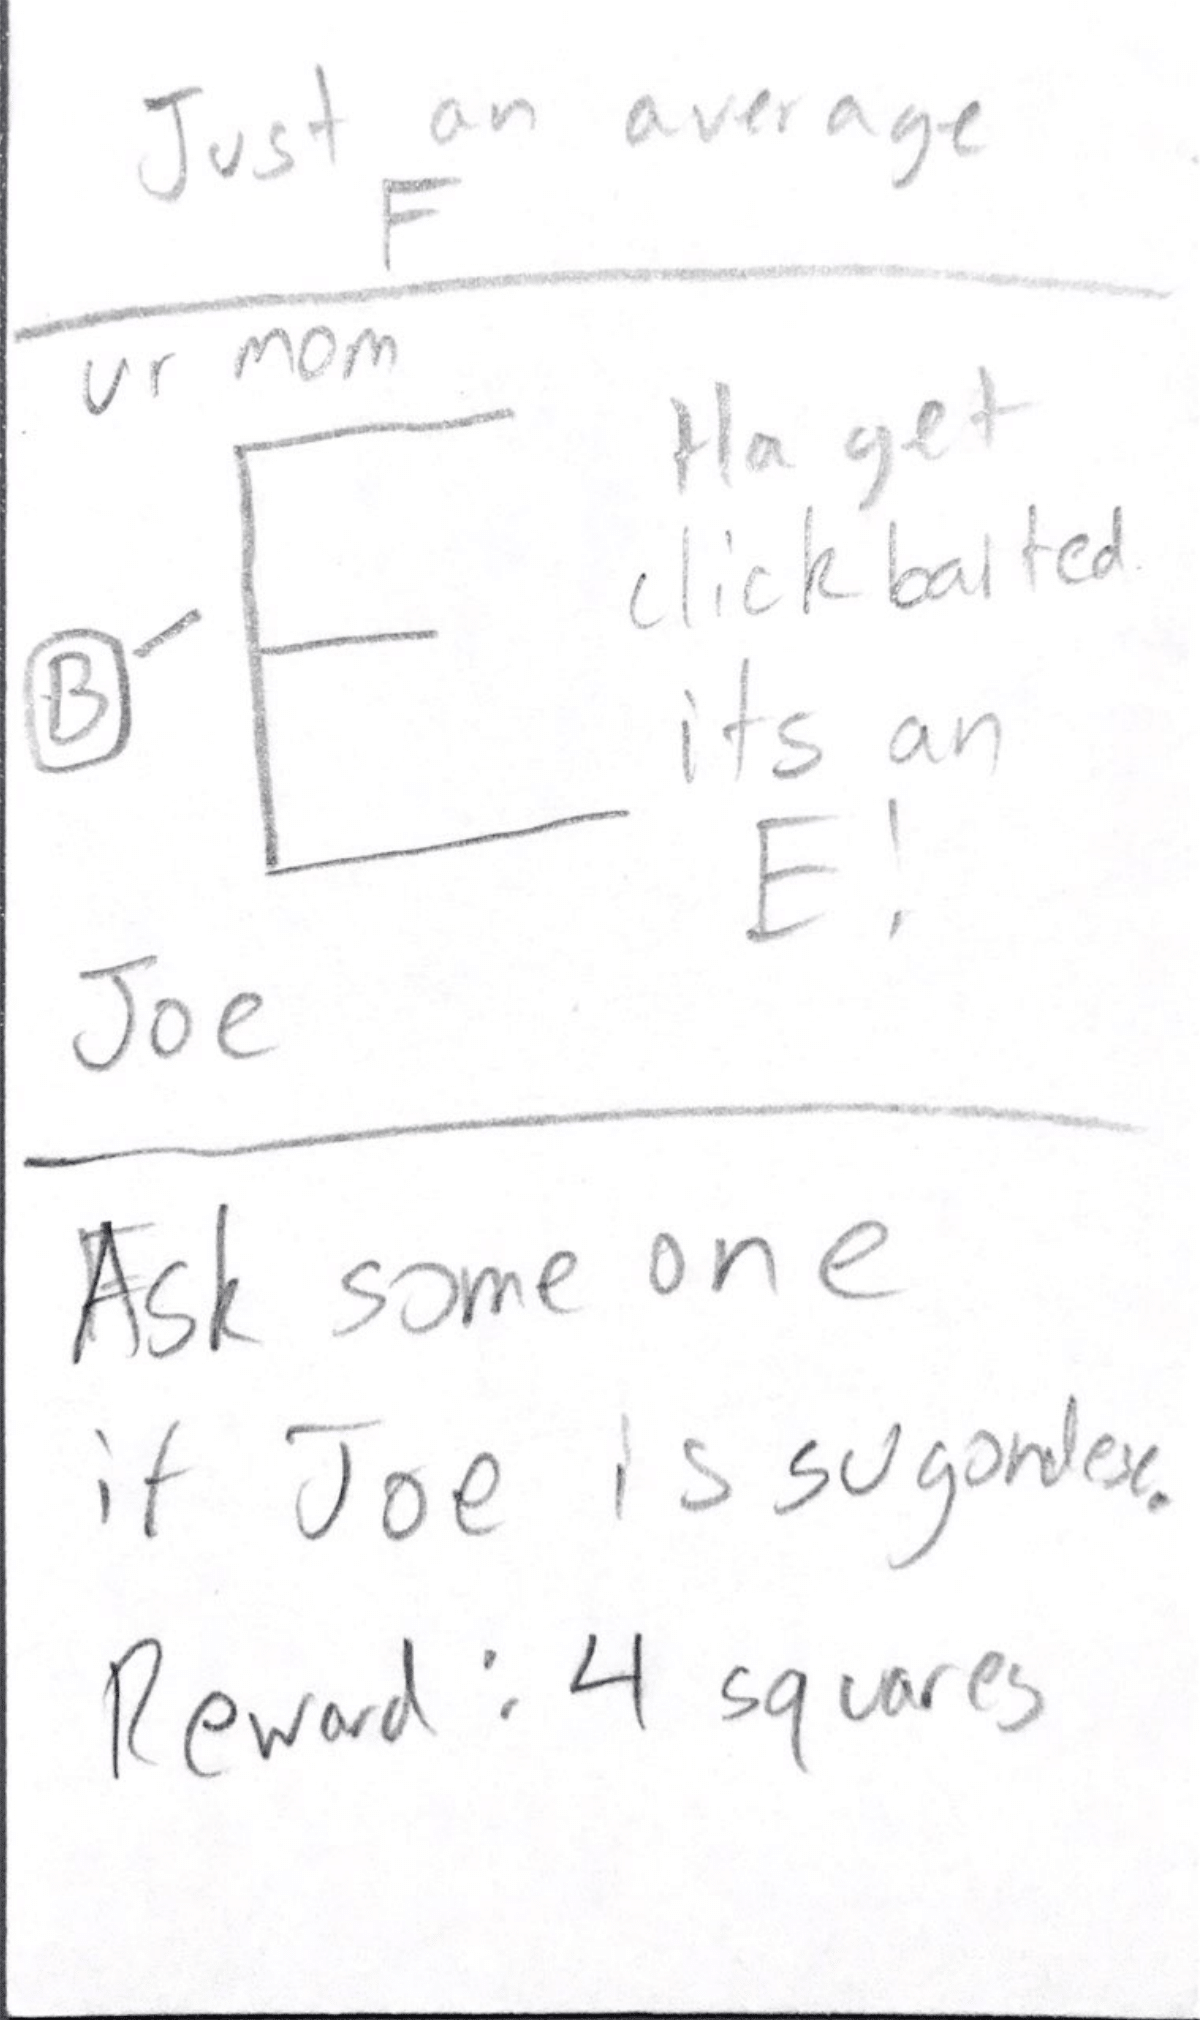 Just an average
F
ur mom
E
Ha get
click baited.
its an
E!
B
Joe
Ask some one
if Joe is sugondese.
Reward: 4 squares